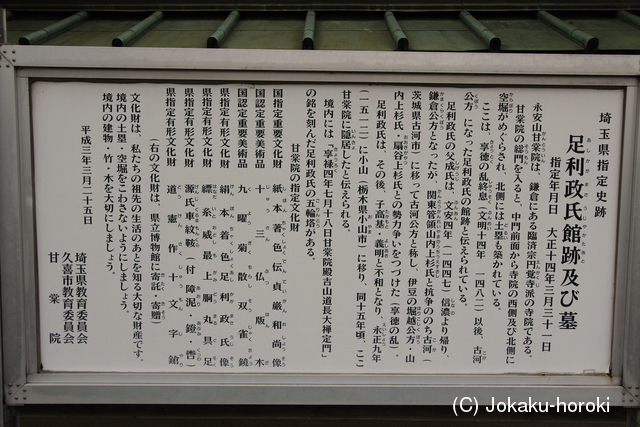 埼玉県指定史跡
足利政氏館跡及び墓
あしかがまさうじやかたあと
指定年月日 大正十四年三月三十一日
永安山甘棠院は、鎌倉にある臨済宗円覚寺派の寺院である。
甘棠院の総門を入ると、中門前面から寺院の西側及び北側に
空堀がめぐらされ、北側には土塁も築かれている。
ここは、享徳の乱終息(文明十四年 一四八二)以後、古河
公方になった足利政氏の館跡と伝えられている。
足利政氏の父成氏は、文安四年(一四四七)信濃より帰り、
鎌倉公方となったが、関東管領山内上杉氏と抗争ののち古河(
茨城県古河市)に移って古河公方と称し、伊豆の堀越公方・山
内上杉氏・扇谷上杉氏との勢力争いをつづけた(享徳の乱)。
足利政氏は、その後、子高基・義明と不和となり、永正九年
(一五一二)に小山(栃木県小山市)に移り、同十五年頃、ここ
甘棠院に隠居したと伝えられる。
境内には「享禄四年七月十八日甘棠院殿吉山道長大禅定門」
の銘を刻んだ足利政氏の五輪塔がある。
甘棠院の指定文化財
国指定重要文化財 紙本著色伝貞巌和尚像
国認定重要美術品 十三仏版木
国認定重要美術品 九曜菊散双雀鏡
県指定有形文化財 絹本著色足利政氏像
県指定有形文化財 縹糸威最上胴丸具足
県指定有形文化財 源氏車紋鞍(付障泥・鐙・轡)
県指定有形文化財 道憲作十文字鎗
(右の文化財は、県立博物館に寄託・寄贈)
文化財は、私たちの祖先の生活のあとを知る大切な財産です。
境内の土塁・空堀をこわさないようにしましょう。
境内の建物・竹・木を大切にしましょう。
平成三年三月二十五日
埼玉県教育委員会
久喜市教育委員会
甘棠院
(C) Jokaku-horoki